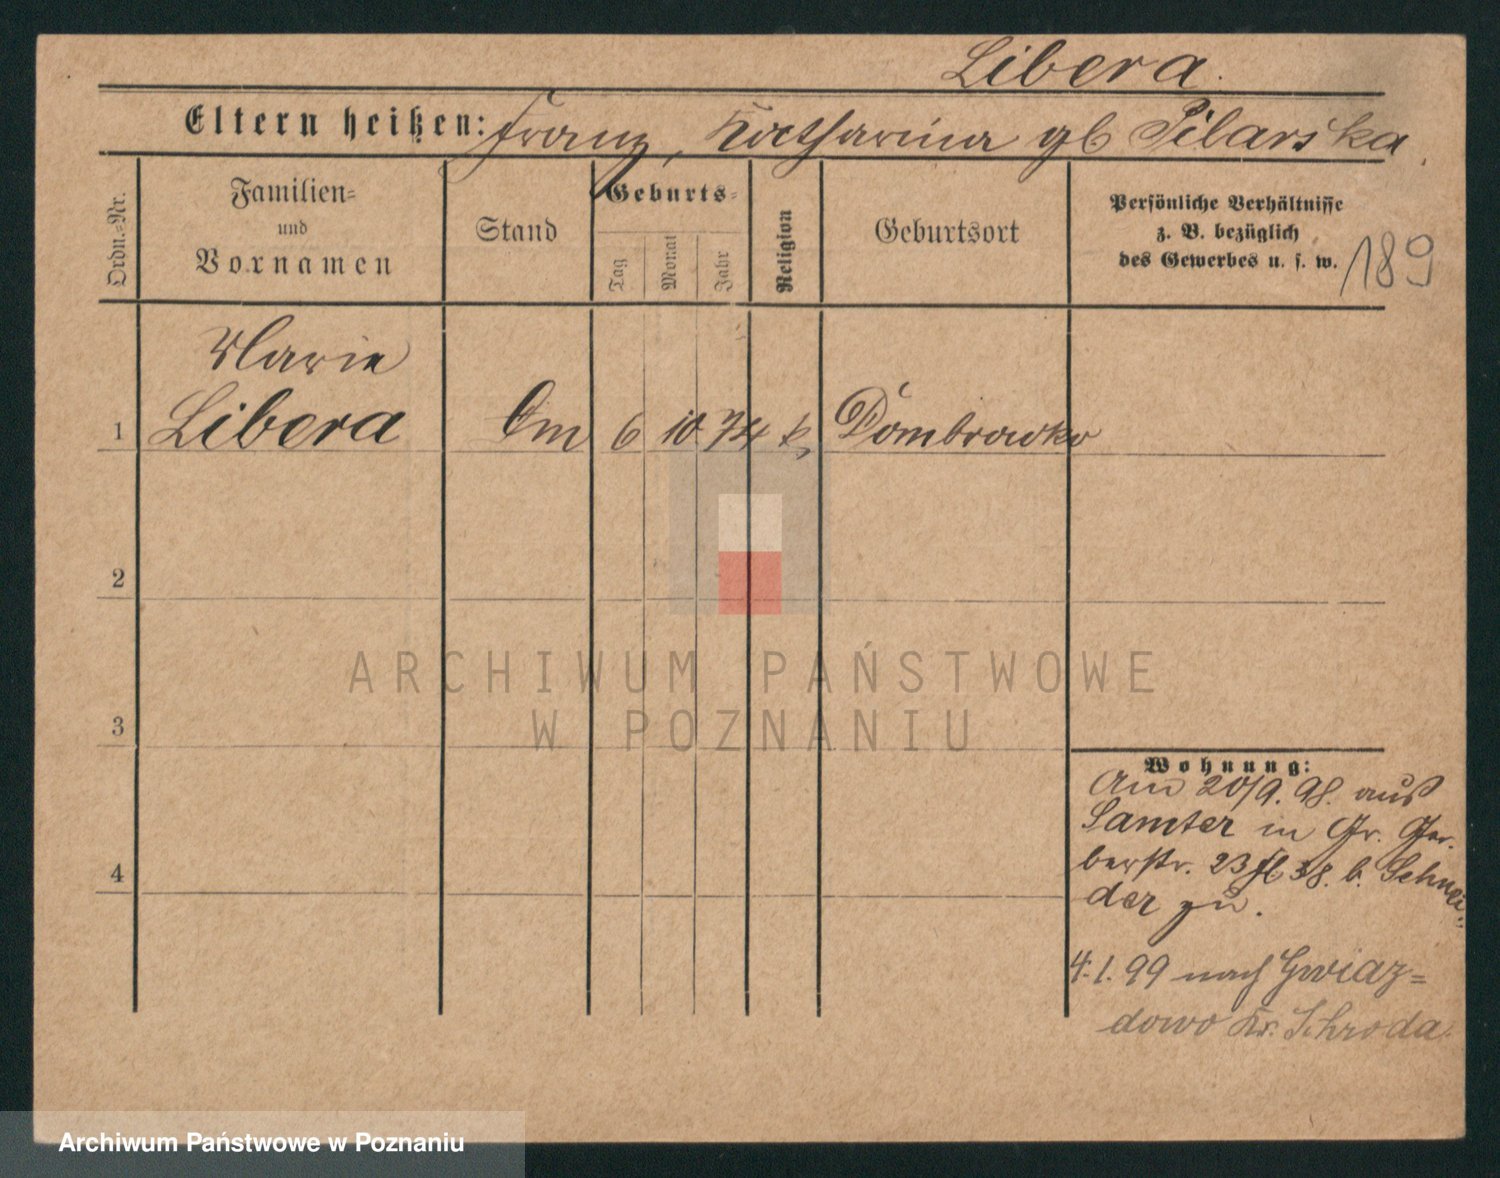 Libera.
Eltern heißen: Franz, Katharina gb Pilarska.
Ordn.=Nr.
Familien=
und
Vornamen
Stand
Geburts=
Tag
Monat
Jahr
Religion
Geburtsort
Persönliche Verhältnisse
z. B. bezüglich
des Gewerbes u. s. w.
189
Marie
1 Libera 6 10 74 k, Dombrowko
2
3
4
ARCHIWUM PAŃSTWOWE
W POZNANIU
Wohnung:
Am 20/9. 98. aus
Samter in Gr. Ger-
berstr. 23 38. b. Schnei-
der zu.
4.1.99 nach Gwiaz=
dowo Kr. Schroda.
Archiwum Państwowe w Poznaniu